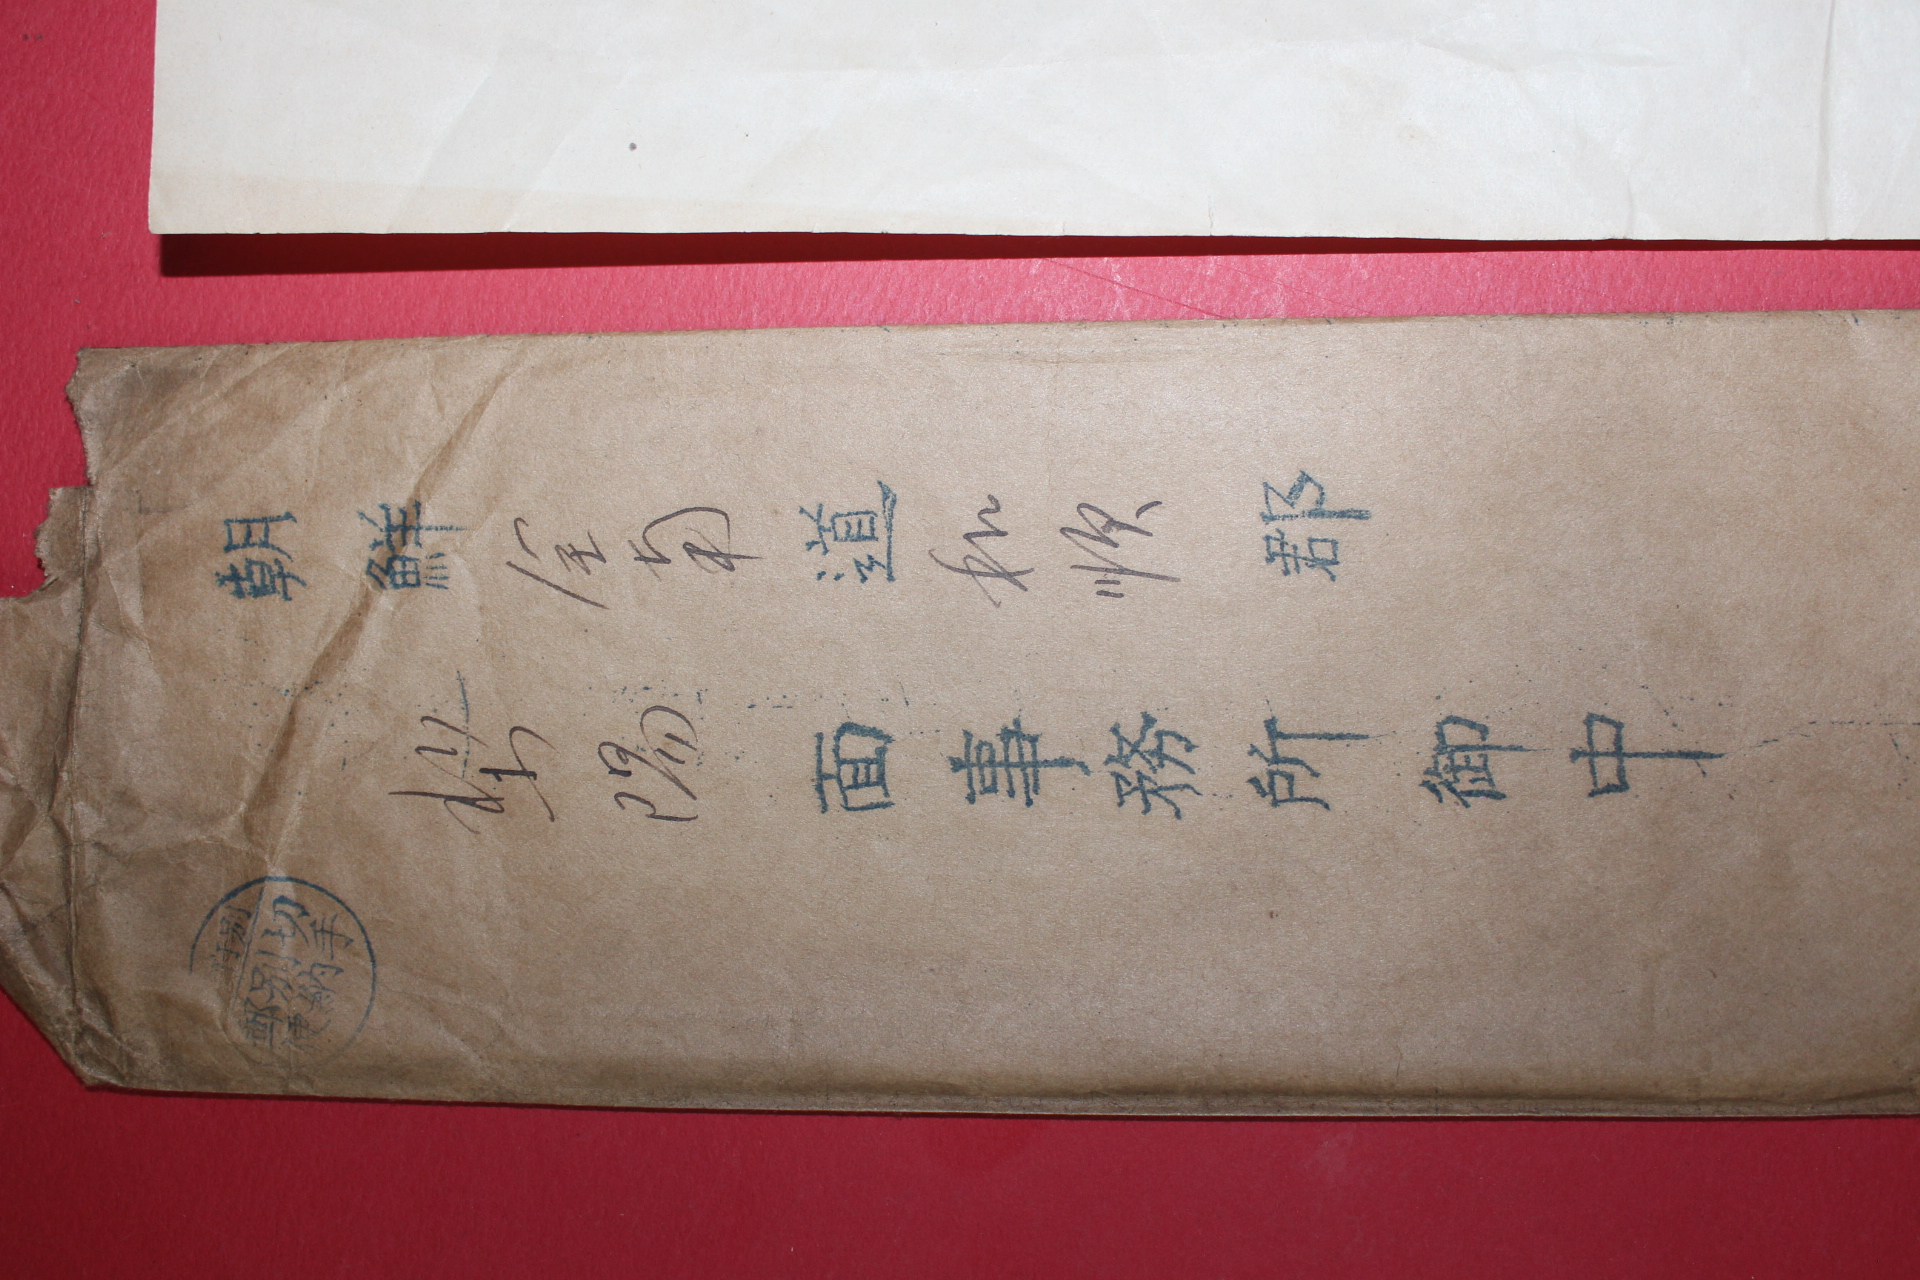 朝鮮全南道和順郡
梨陽面事務所御中
特別
切手
別納
郵便